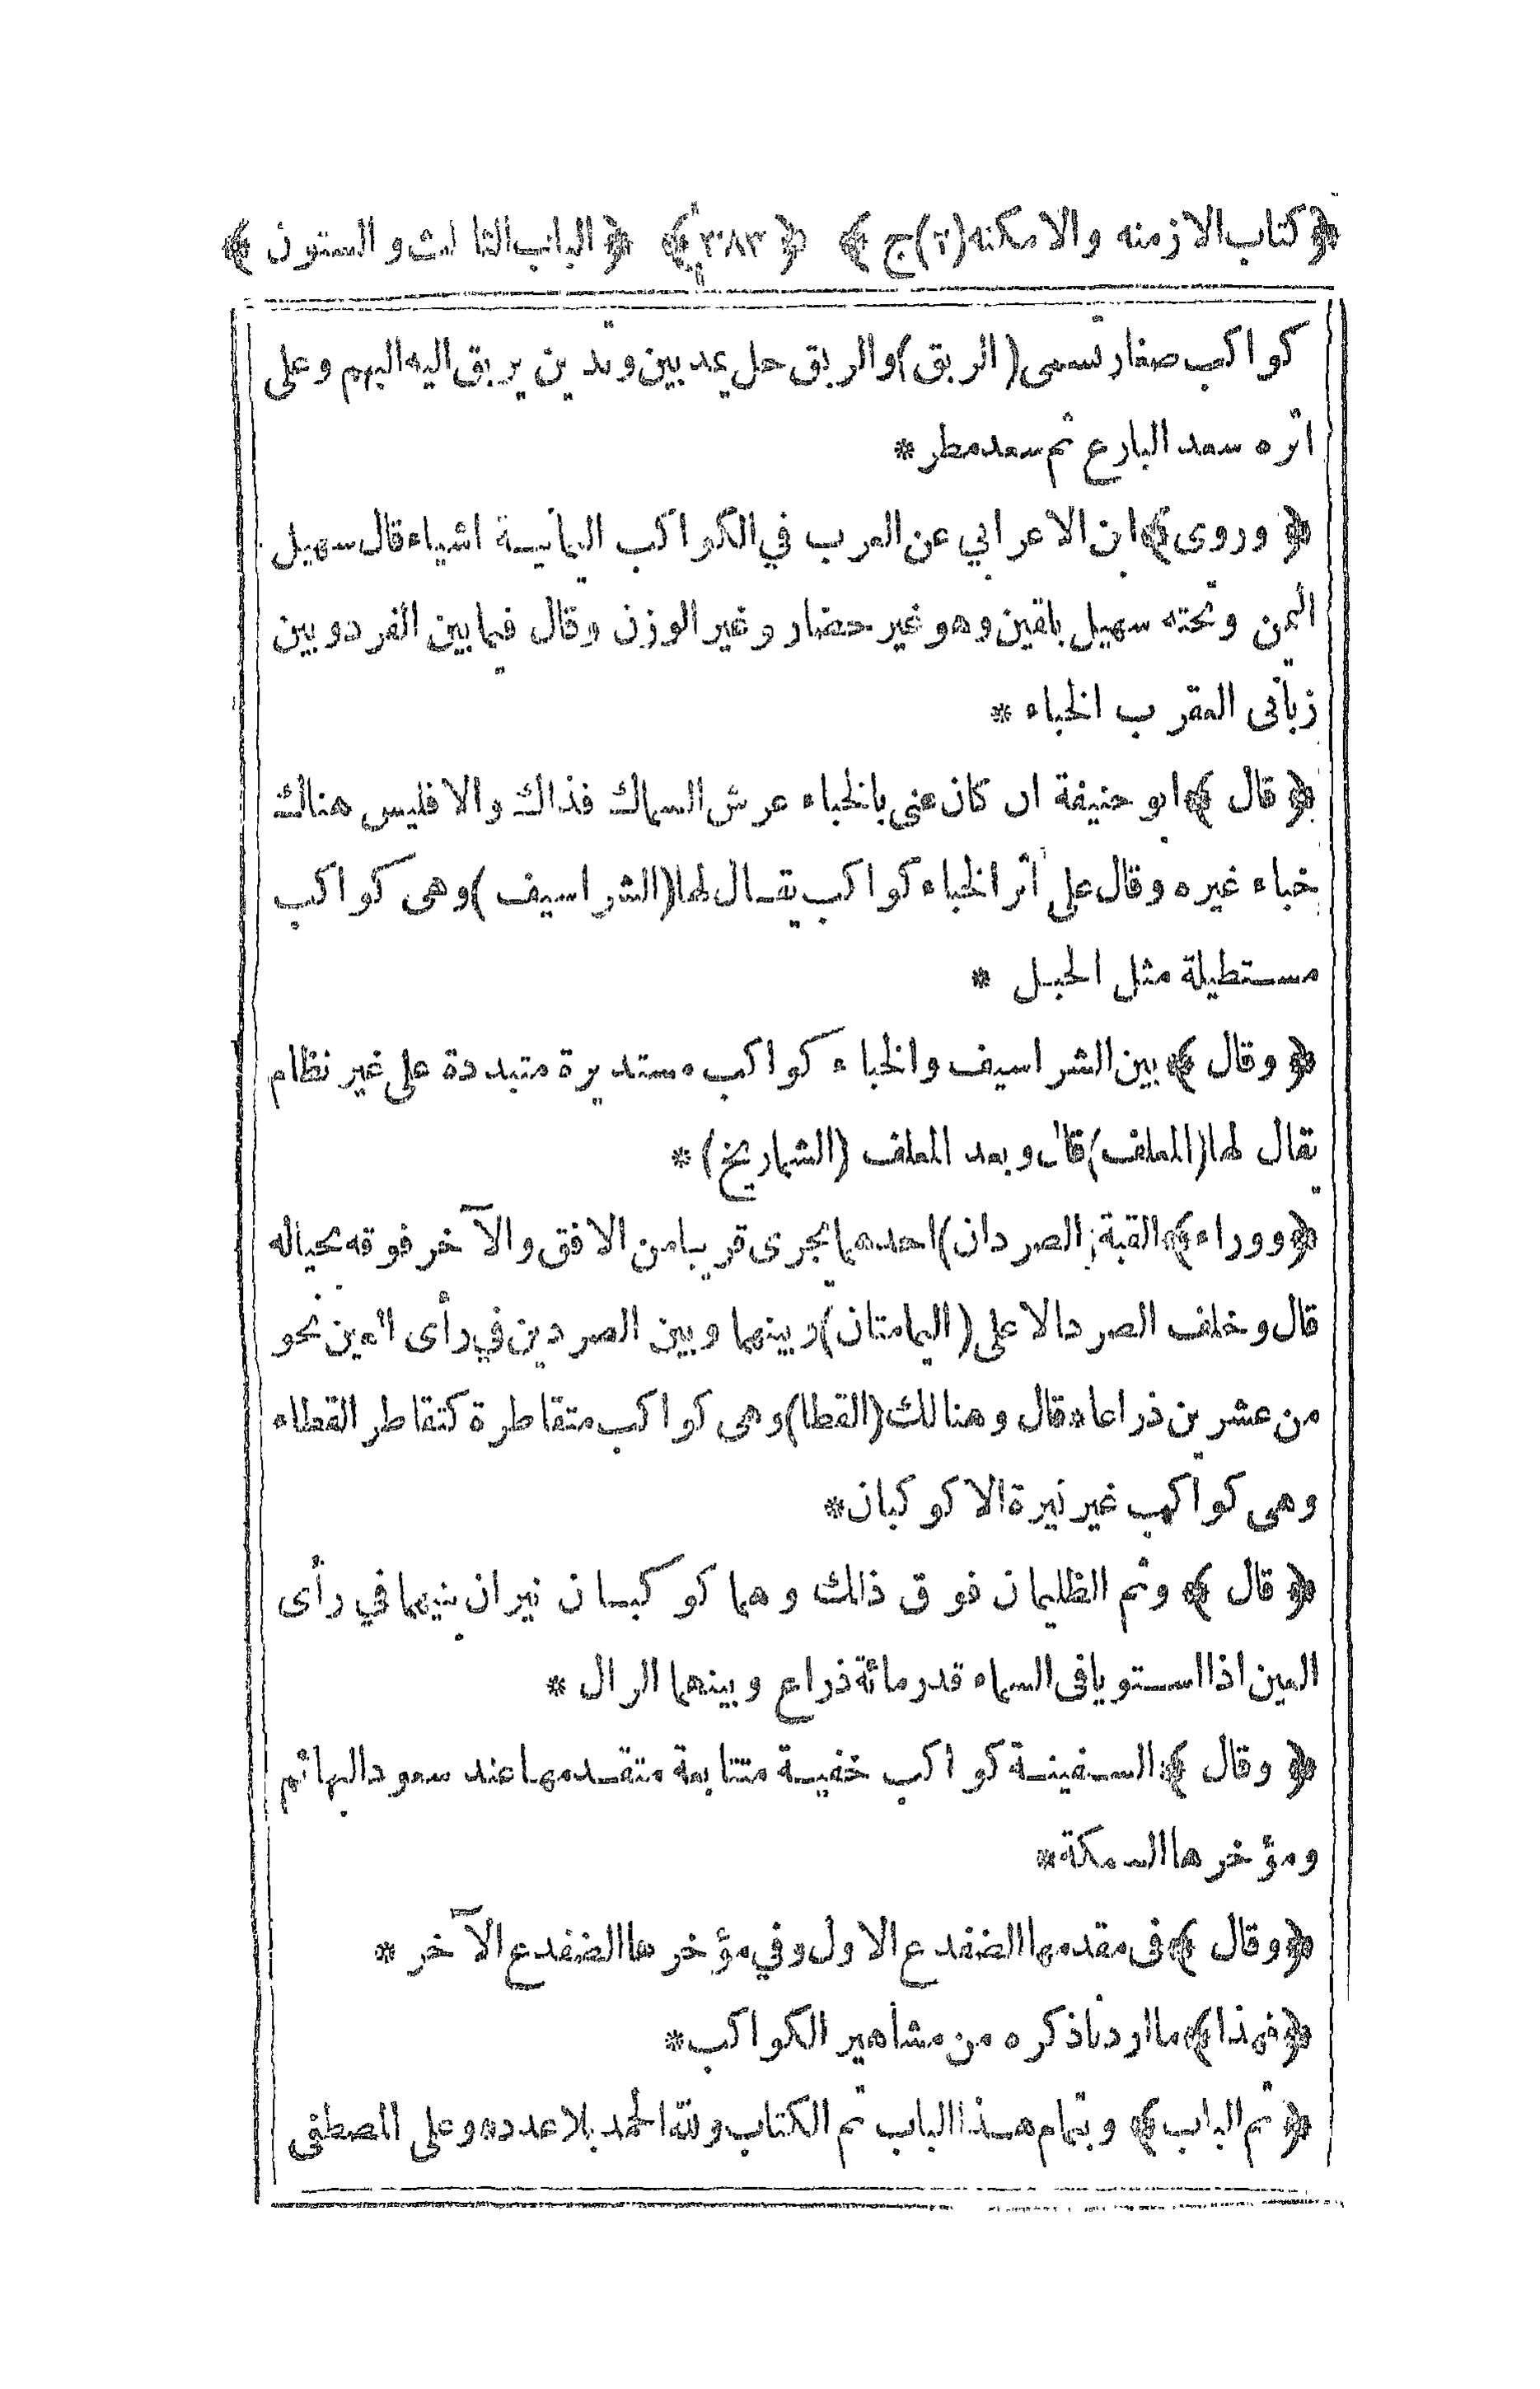 ﴿ كتاب الازمنه والامكنه (٢) ج ﴾ ﴿ ٣٨٣ ﴾ ﴿ الباب الثالث والستون ﴾
كواكب صغار تسمى (الربق) والربق حبل يمد بين وتدين يربق اليه البهم وعلى
اثره سعد البارع ثم سعد مطر *
﴿ وروى ﴾ ابن الاعرابي عن العرب في الكواكب اليمانية اشياء قال سهيل
اليمن وتحته سهيل بلقين وهو غير حضار وغير الوزن وقال فيما بين الفرد وبين
زبانى العقرب الخباء *
﴿ قال ﴾ ابو حنيفة ان كان عنى بالخباء عرش السماك فذاك والا فليس هناك
خباء غيره وقال على اثر الخباء كواكب يقال لها (الشراسيف) وهى كواكب
مستطيلة مثل الحبل *
﴿ وقال ﴾ بين الشراسيف والخباء كواكب مستديرة متبددة على غير نظام
يقال لها (المعلف) قال وبعد المعلف (الشماريخ) *
﴿ ووراء ﴾ القبة (الصردان) احدهما يجرى قريبا من الافق والآخر فوقه بحياله
قال وخلف الصرد الاعلى (اليمامتان) وبينهما وبين الصردين في رأى العين نحو
من عشرين ذراعا ٥ قال وهنالك (القطا) وهى كواكب متقاطرة كتقاطر القطا ٥
وهى كواكب غير نيرة الا كوكبان *
﴿ قال ﴾ وثم الظليمان فوق ذلك وهما كوكبان نيران بينهما في رأى
العين اذا استويا فى السماء قدر مائة ذراع وبينهما الرال *
﴿ وقال ﴾ السفينة كواكب خفية متتابعة متقدمها عند سعود البهائم
ومؤخرها السمكة *
﴿ وقال ﴾ فى مقدمها الضفدع الاول وفي مؤخرها الضفدع الآخر *
﴿ فهذا ﴾ ما اردنا ذكره من مشاهير الكواكب *
﴿ تم الباب ﴾ وبتمام هذا الباب تم الكتاب ولله الحمد بلا عدده وعلى المصطفى